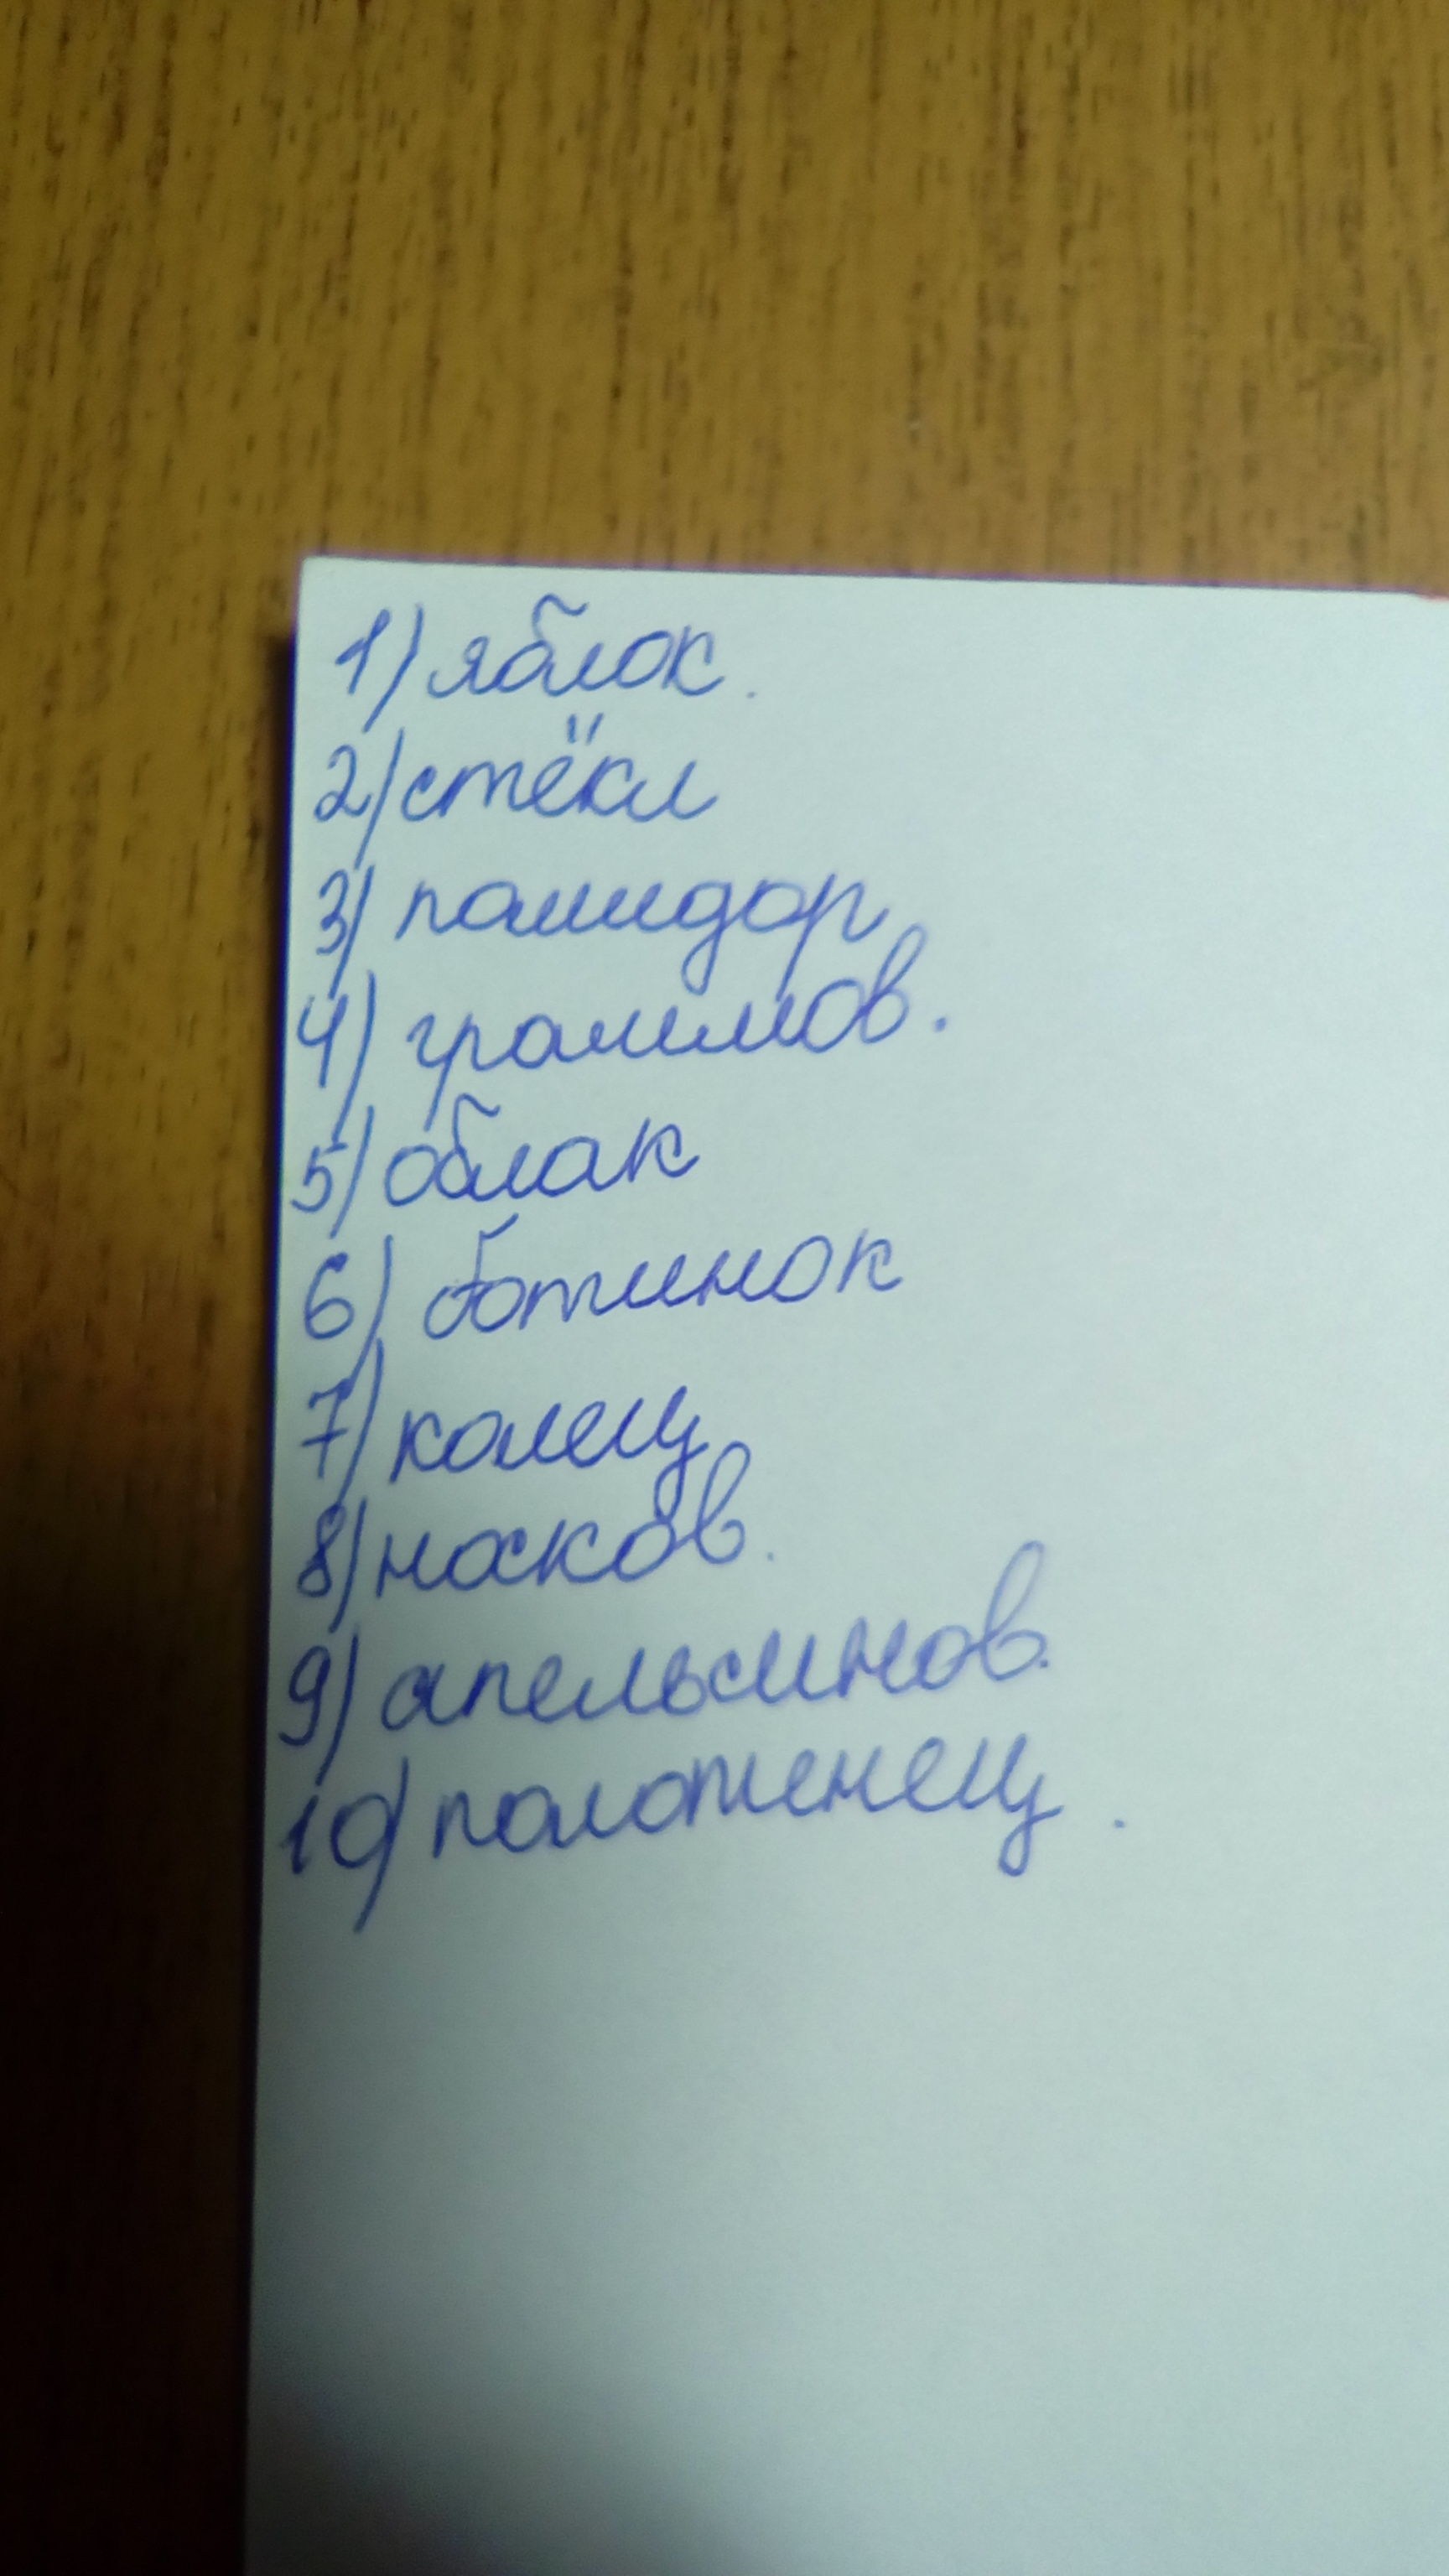 1) яблок.
2) стёкл
3) помидор
4) граммов.
5) облак
6) ботинок
7) колец
8) носков.
9) апельсинов.
10) полотенец.